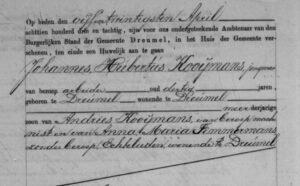 Op heden den vijf en twintigsten April
achttien honderd drie en tachtig, zijn voor ons ondergeteekende Ambtenaar van den
Burgerlijken Stand der Gemeente Dreumel, in het Huis der Gemeente ver-
schenen, ten einde een Huwelijk aan te gaan
Johannes, Hubertus Kooijmans, jongman
van beroep arbeider oud dertig jaren
geboren te Dreumel wonende te Dreumel
meerderjarige
zoon van Andries Kooijmans, van beroep
nist en van Anna Maria Timmermans,
zonder beroep, Echtelieden, wonende te Dreumel